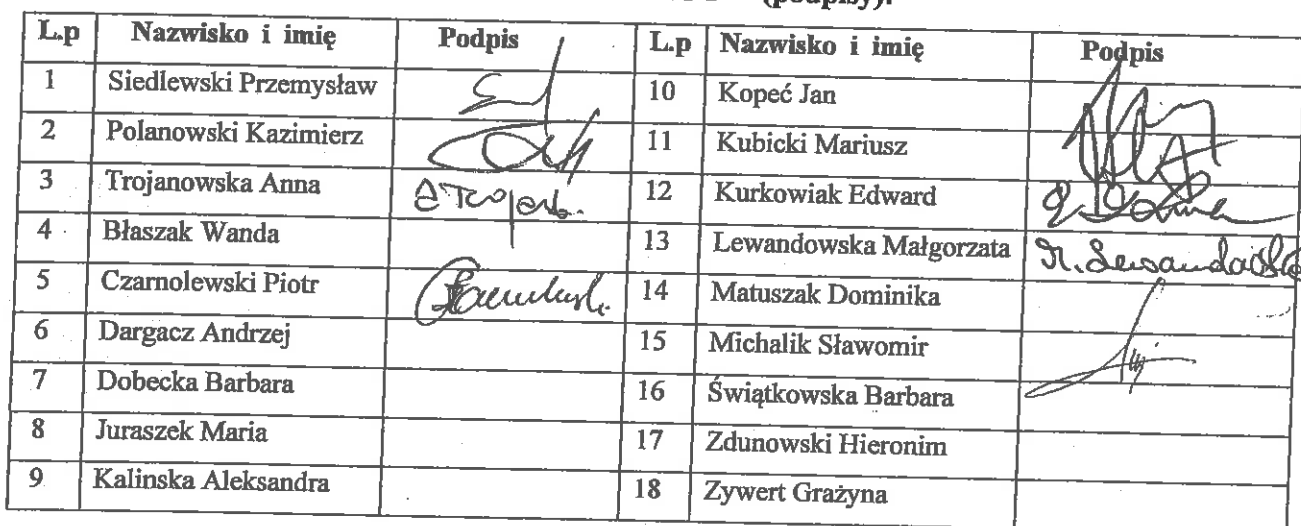 (podpisy).
L.p Nazwisko i imię Podpis L.p Nazwisko i imię Podpis
1 Siedlewski Przemysław 10 Kopeć Jan
2 Polanowski Kazimierz 11 Kubicki Mariusz
3 Trojanowska Anna 12 Kurkowiak Edward
4 Błaszak Wanda 13 Lewandowska Małgorzata
5 Czarnolewski Piotr 14 Matuszak Dominika
6 Dargacz Andrzej 15 Michalik Sławomir
7 Dobecka Barbara 16 Świątkowska Barbara
8 Juraszek Maria 17 Zdunowski Hieronim
9 Kalinska Aleksandra 18 Zywert Grażyna